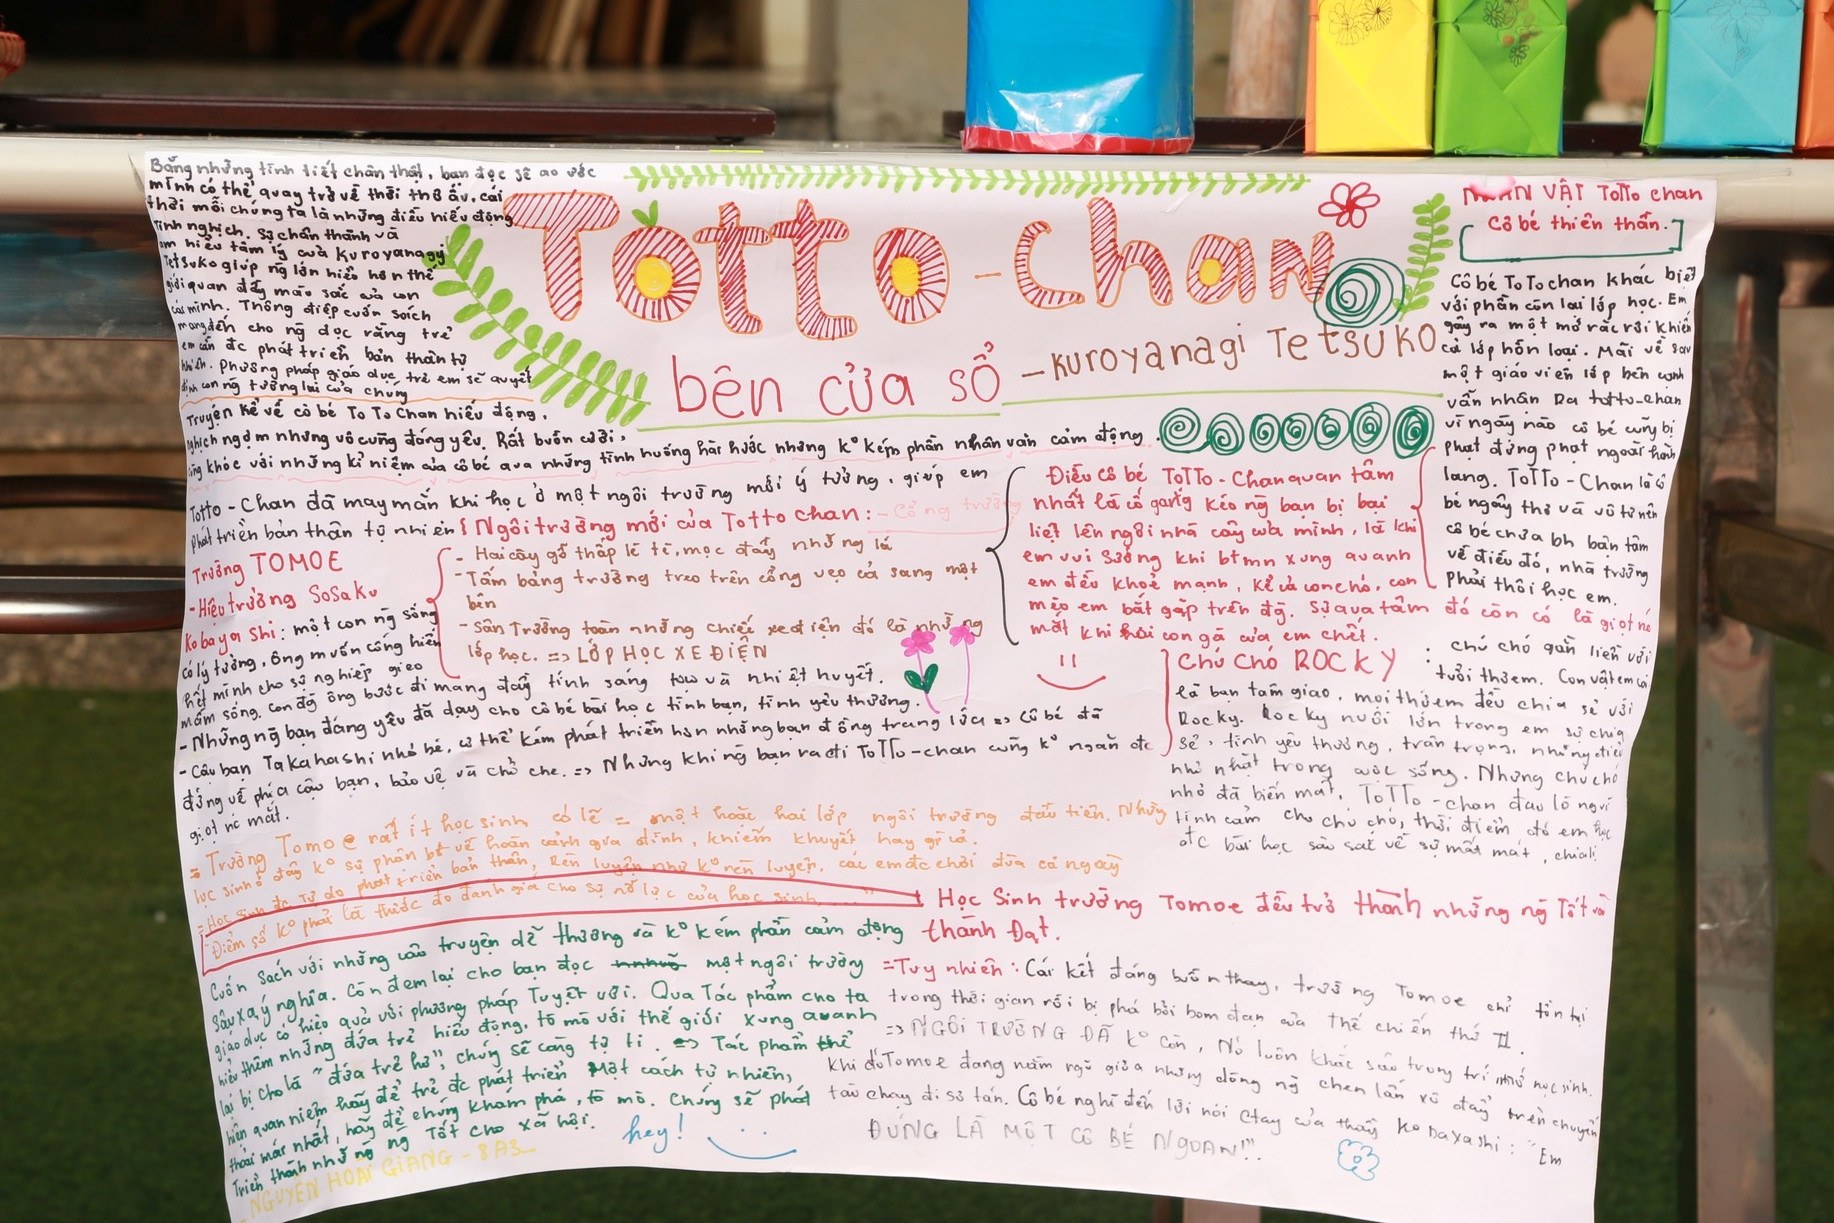 Totto-chan
bên cửa sổ
- Kuroyanagi Tetsuko
Bằng những tình tiết chân thật, bạn đọc sẽ ao ước
mình có thể quay trở về thời thơ ấu, cái
thời mỗi chúng ta là những điều hiếu động
tinh nghịch. Sự chân thành và
am hiểu tâm lý của Kuroyanagi
Tetsuko giúp ng lớn hiểu hơn thế
giới quan đầy màu sắc của con
của mình. Thông điệp cuốn sách
mang đến cho ng đọc rằng trẻ
em cần đc phát triển bản thân tự
nhiên. Phương pháp giáo dục trẻ em sẽ quyết
định con ng tương lai của chúng
Truyện kể về cô bé ToToChan hiếu động,
nghịch ngợm nhưng vô cùng đáng yêu. Rất buồn cười,
cũng khóc với những kỉ niệm của cô bé qua những tình huống hài hước nhưng k° kém phần nhân văn cảm động.
Totto-Chan đã may mắn khi học ở một ngôi trường mới lý tưởng, giúp em
phát triển bản thân tự nhiên
Ngôi trường mới của Totto chan: - Cổng trường
- Hai cây gỗ thấp lè tè, mọc đầy những lá
- Tấm bảng trường treo trên cổng vẹo cả sang một
bên
- Sân trường toàn những chiếc xe điện đó là những
lớp học. => LỚP HỌC XE ĐIỆN
Trường TOMOE
- Hiệu trưởng Sosaku
Kobayashi: một con ng sống
có lý tưởng, ông muốn cống hiến
hết mình cho sự nghiệp gieo
mầm sống. con đg ông bước đi mang đầy tính sáng tạo và nhiệt huyết.
- Những ng bạn đáng yêu đã dạy cho cô bé bài học tình bạn, tình yêu thương.
- Cậu bạn Takahashi nhỏ bé, cơ thể kém phát triển hơn những bạn đồng trang lứa => Cô bé đã
đứng về phía cậu bạn, bảo vệ và chở che. => Nhưng khi ng bạn ra đi ToTTo-chan cũng k° ngăn đc
giọt nc mắt.
Điều cô bé ToTTo-Chan quan tâm
nhất là cố gắng kéo ng bạn bị bại
liệt lên ngôi nhà cây của mình, là khi
em vui sướng khi btmn xung quanh
em đều khoẻ mạnh, kể cả con chó, con
mèo em bắt gặp trên đg. Sự quan tâm đó còn có là giọt nc
mắt khi hai con gà của em chết.
NHÂN VẬT ToTTo chan
Cô bé thiên thần.
Cô bé ToTochan khác biệt
với phần còn lại lớp học. Em
gây ra một mớ rắc rối khiến
cả lớp hỗn loại. Mãi về sau
một giáo viên lớp bên cạnh
vẫn nhận ra totto-chan
vì ngày nào cô bé cũng bị
phạt đứng phạt ngoài hành
lang. ToTTo-Chan là cô
bé ngây thơ và vô tư nên
cô bé chưa bh bận tâm
về điều đó, nhà trường
phải thôi học em.
Chú chó ROCKY : chú chó gắn liền với
tuổi thơ em. Con vật em coi
là bạn tâm giao, mọi thứ em đều chia sẻ với
Rocky. Rocky nuôi lớn trong em sự chia
sẻ, tình yêu thương, trân trọng, những điều
nhỏ nhặt trong cuộc sống. Nhưng chú chó
nhỏ đã biến mất, ToTTo-chan đau lòng vì
tình cảm cho chú chó, thời điểm đó em học
đc bài học sâu sắc về sự mất mát, chia li
= Trường Tomoe rất ít học sinh có lẽ = một hoặc hai lớp ngôi trường đầu tiên. Nhưng
học sinh ở đây k° sự phân bt về hoàn cảnh gia đình, khiếm khuyết hay gì cả.
= Học sinh đc tự do phát triển bản thân, Rèn luyện như k° rèn luyện, các em đc chơi đùa cả ngày
- Điểm số k° phải là thước đo đánh giá cho sự nỗ lực của học sinh......"
Học Sinh trường Tomoe đều trở thành những ng Tốt và
thành Đạt.
Cuốn sách với những câu truyện dễ thương và k° kém phần cảm động
sâu xa, ý nghĩa. Còn đem lại cho bạn đọc một ngôi trường
giáo dục có hiệu quả với phương pháp Tuyệt vời. Qua Tác phẩm cho ta
hiểu thêm những đứa trẻ hiếu động, tò mò với thế giới xung quanh
lại bị cho là "đứa trẻ hư", chúng sẽ càng tự ti. => Tác phẩm thể
hiện quan niệm hãy để trẻ đc phát triển Một cách tự nhiên,
thoải mái nhất, hãy để chúng khám phá, tò mò. Chúng sẽ phát
Triển thành những ng Tốt cho xã hội.
= Tuy nhiên: Cái kết đáng buồn thay, trường Tomoe chỉ tồn tại
trong thời gian rồi bị phá bởi bom đạn của Thế chiến thứ II.
=> NGÔI TRƯỜNG ĐÃ k° còn, Nó luôn khắc sâu trong trí nhớ học sinh.
khi đó Tomoe đang nằm ngủ giữa những dòng ng chen lấn xô đẩy trên chuyến
tàu chạy đi sơ tán. Cô bé nghĩ đến lời nói của thầy Kobayashi: "Em
ĐÚNG LÀ MỘT CÔ BÉ NGOAN!".
hey!
NGUYỄN HOÀI GIANG - 8A3